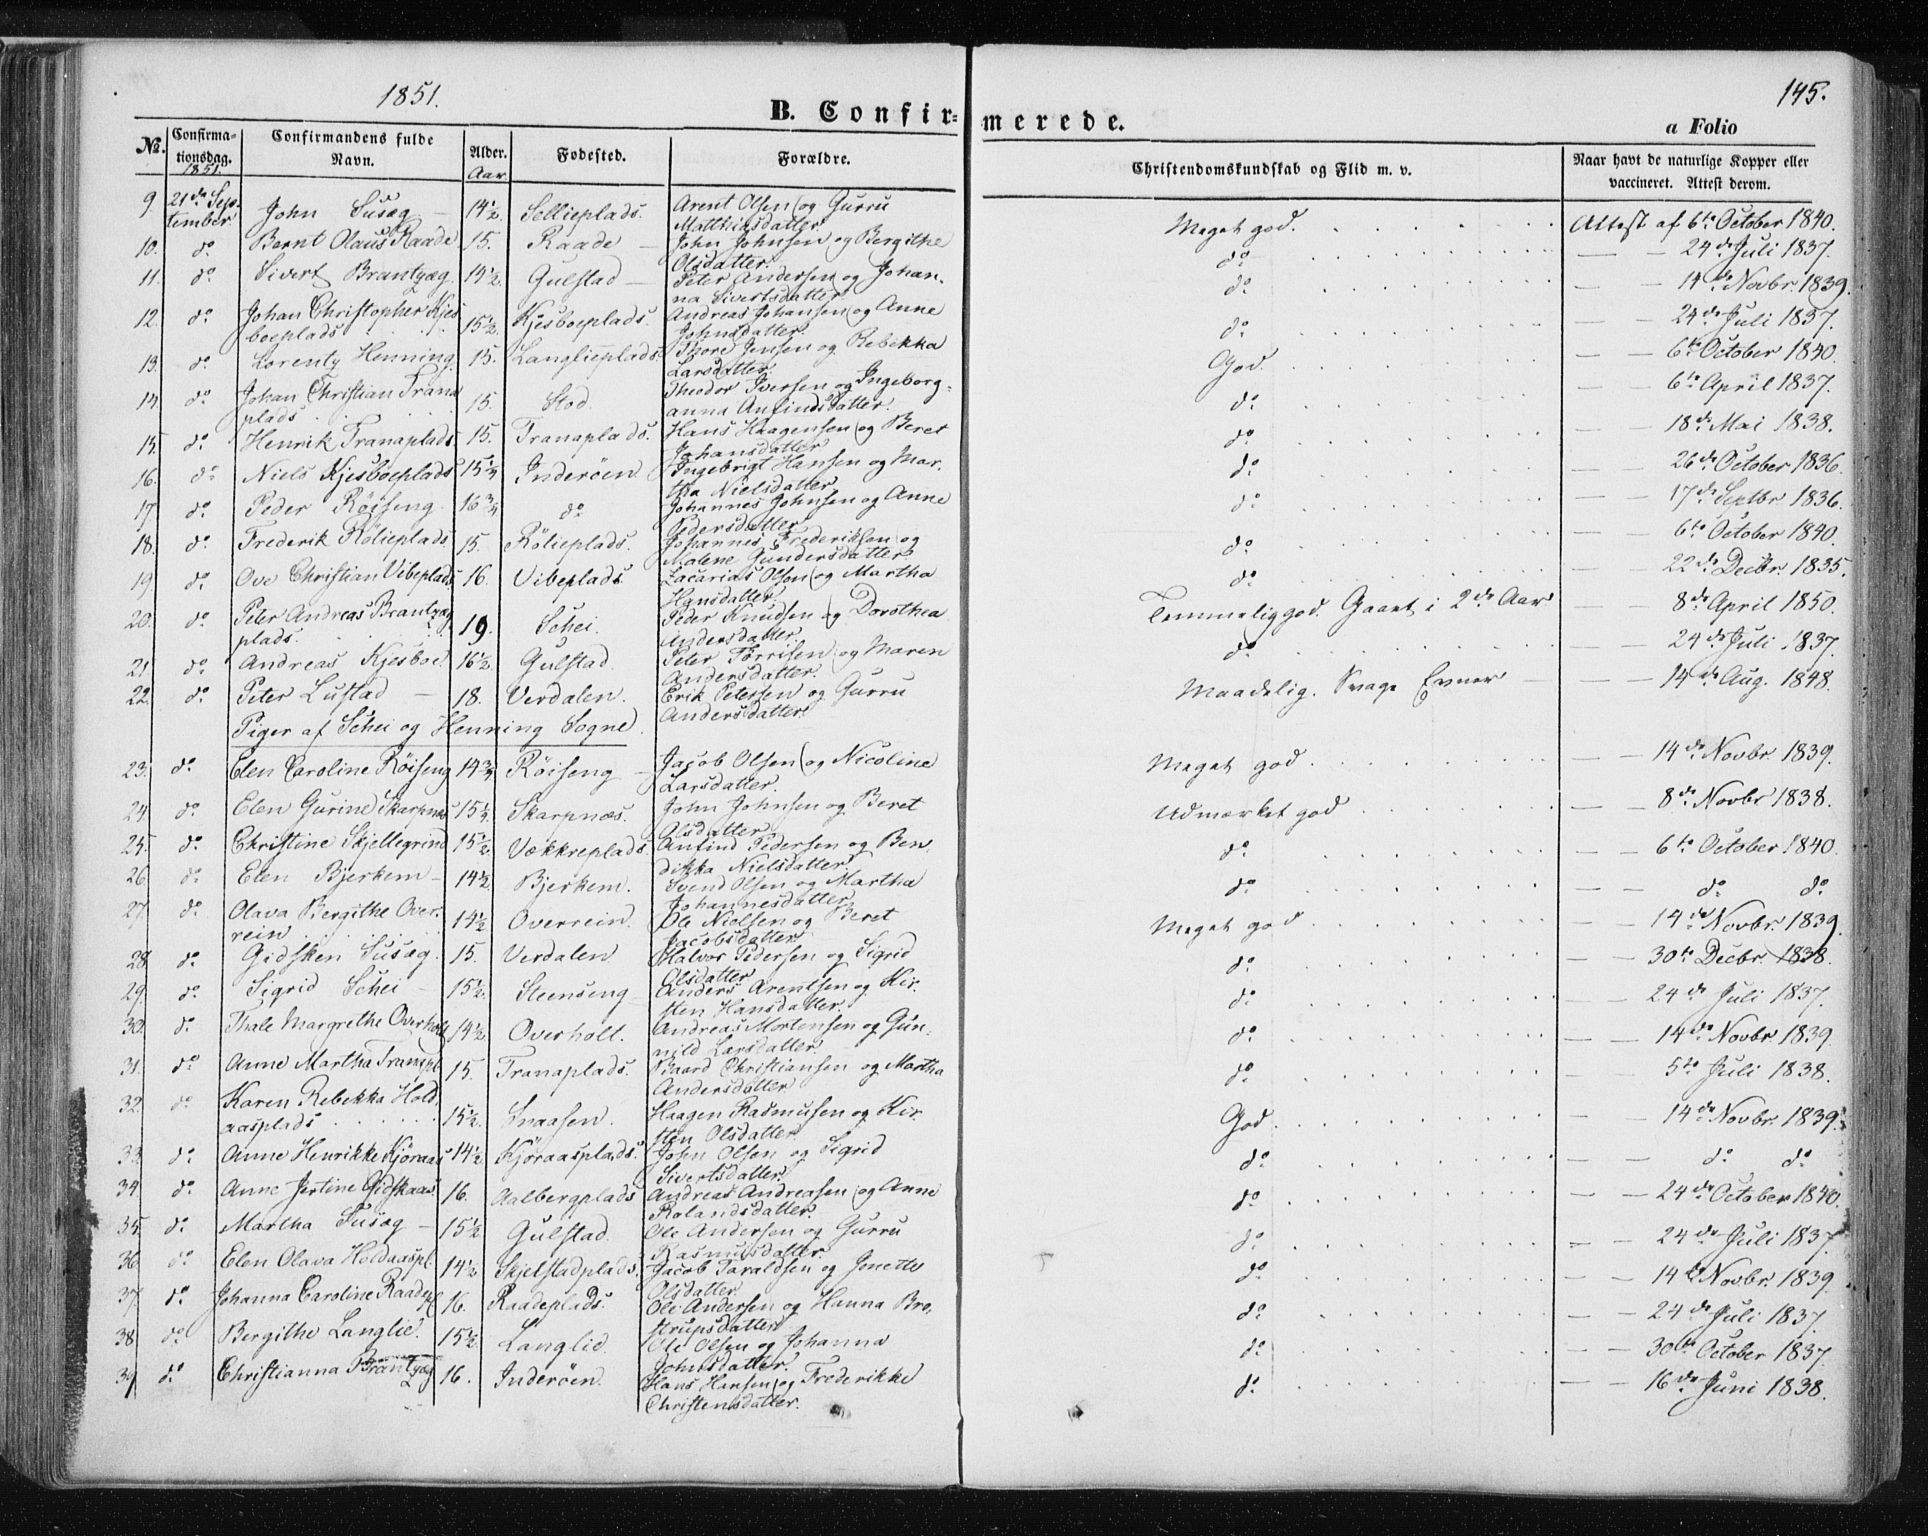 1851.
145.
B. Confirmerede.
a Folio
No. Confirmationsdag. 1851. Confirmandens fulde Navn. Alder. Aar Fødested. Forældre. Christendomskundskab og Flid m. v. Naar havt de naturlige Kopper eller vaccineret. Attest derom.
9 21de September John Susæg 14½. Sellieplads. Arent Olsen og Gurru Matthiasdatter Meget god. Attest af 6te October 1840.
10. do Bernt Olaus Raade 15. Raade John Johnsen og Bergithe Olsdatter. do — — 24de Juli 1837.
11. do Sivert Brantzæg. 14½. Gulstad Peter Andersen og Johanna Sivertsdatter do — — 14de Novbr. 1839.
12. do Johan Christopher Kjesboeplads 15½. Kjesboeplads. Andreas Johansen og Anne Johnsdatter. do — — 24de Juli 1837.
13. do Lorentz Henning. 15. Langlieplads. Thore Jensen og Rebekka Larsdatter. God. — — 6te October 1840.
14. do Johan Christian Tranaplads 15. Stod. Theodor Iversen og Ingeborganna Anfindsdatter. do — — 6te April 1837.
15. do Henrik Tranaplads 15. Tranaplads. Hans Haagensen og Beret Johansdatter do — — 18de Mai 1838.
16. do Niels Kjesboeplads 15¼ Inderøen. Ingebrigt Hansen og Martha Nielsdatter do — — 26de October 1836.
17. do Peder Røiseng. 16¾ do Johannes Johnsen og Anne Pedersdatter do — — 17de Septbr 1836.
18. do Frederik Rølieplads 15. Rølieplads. Johannes Frederiksen og Malene Gundersdatter do — — 6te October 1840.
19. do Ove Christian Vibeplads 16. Vibeplads. Zacarias Olsen og Martha Hansdatter. do — — 22de Decbr. 1835.
20. do Peter Andreas Brantzægplads. 19. Schei. Peder Knudsen og Dorothea Andersdatter. Temmelig god. Gaaet i 2de Aar — — 8de April 1850.
21 do Andreas Kjesboe. 16½. Gulstad. Peter Torrisen og Maren Andersdatter. do — — 24de Juli 1837.
22. do Peter Lustad 18. Verdalen. Erik Petersen og Gurru Andersdatter. Maadelig. Svage Evner — — 14de Aug. 1848.
Piger af Schei og Henning Sogne.
23. do Elen Caroline Røiseng 14¾ Røiseng Jacob Olsen og Nicoline Larsdatter. Meget god. — — 14de Novbr. 1839.
24 do Elen Gurine Skarpnæs 15¼. Skarpnæs. John Johnsen og Beret Olsdatter Udmærket god — — 8de Novbr 1838.
25. do Christine Skjellegrind 15½. Vækkreplads. Anfind Pedersen og Bendikka Nielsdatter do — — 6te October 1840.
26 do Elen Bjerkem 14½ Bjerkem. Svend Olsen og Martha Johannesdatter do — — do do
27 do Olava Bergithe Overrein 14½ Overrein. Ole Nielsen og Beret Jacobsdatter. Meget god — — 14de Novbr. 1839.
28 do Gidsken Susæg. 15. Verdalen Halvor Pedersen og Sigrid Olsdatter do — — 30te Decbr. 1838.
29. do Sigrid Schei 15½. Steenseng Anders Arentsen og Kirsten Hansdatter. do — — 24de Juli 1837.
30. do Thale Margrethe Overholt 14½ Overholt. Andreas Mortensen og Gunnild Larsdatter do — — 14de Novbr. 1839.
31. do Anne Martha Tranapl 15. Tranaplads. Baard Christiansen og Martha Andersdatter do — — 5te Juli 1838.
32. do Karen Rebekka Holdaasplads 15½. Snaasen. Haagen Rasmusen og Kirsten Olsdatter God. — — 14de Novbr. 1839.
33. do Anne Henrikke Kjøraas 14½ Kjøraasplads. John Olsen og Sigrid Sivertsdatter. do — — do do
34. do Anne Jertine Gidskaas 16. Aalbergplads Andreas Andreasen og Anne Rolandsdatter. do — — 24de October 1840.
35. do Martha Susæg 15½ Gulstad. Ole Andersen og Gurru Rasmusdatter. do — — 24de Juli 1837.
36 do Elen Olava Holdaaspl. 14½ Skjelstadplads. Jacob Taraldsen og Jonette Olsdatter do — — 14de Novbr. 1839.
37 do Johanna Caroline Raadepl 16. Raadeplads. Ole Andersen og Hanna Brostrupsdatter do — — 24de Juli 1837.
38 do Bergithe Langlie. 15½ Langlie. Ole Olsen og Johanna Johnsdatter. do — — 30te October 1837.
39 do Christianna Brantzæg 16. Inderøen. Hans Hansen og Frederikke Christensdatter. do — — 16de Juni 1838.